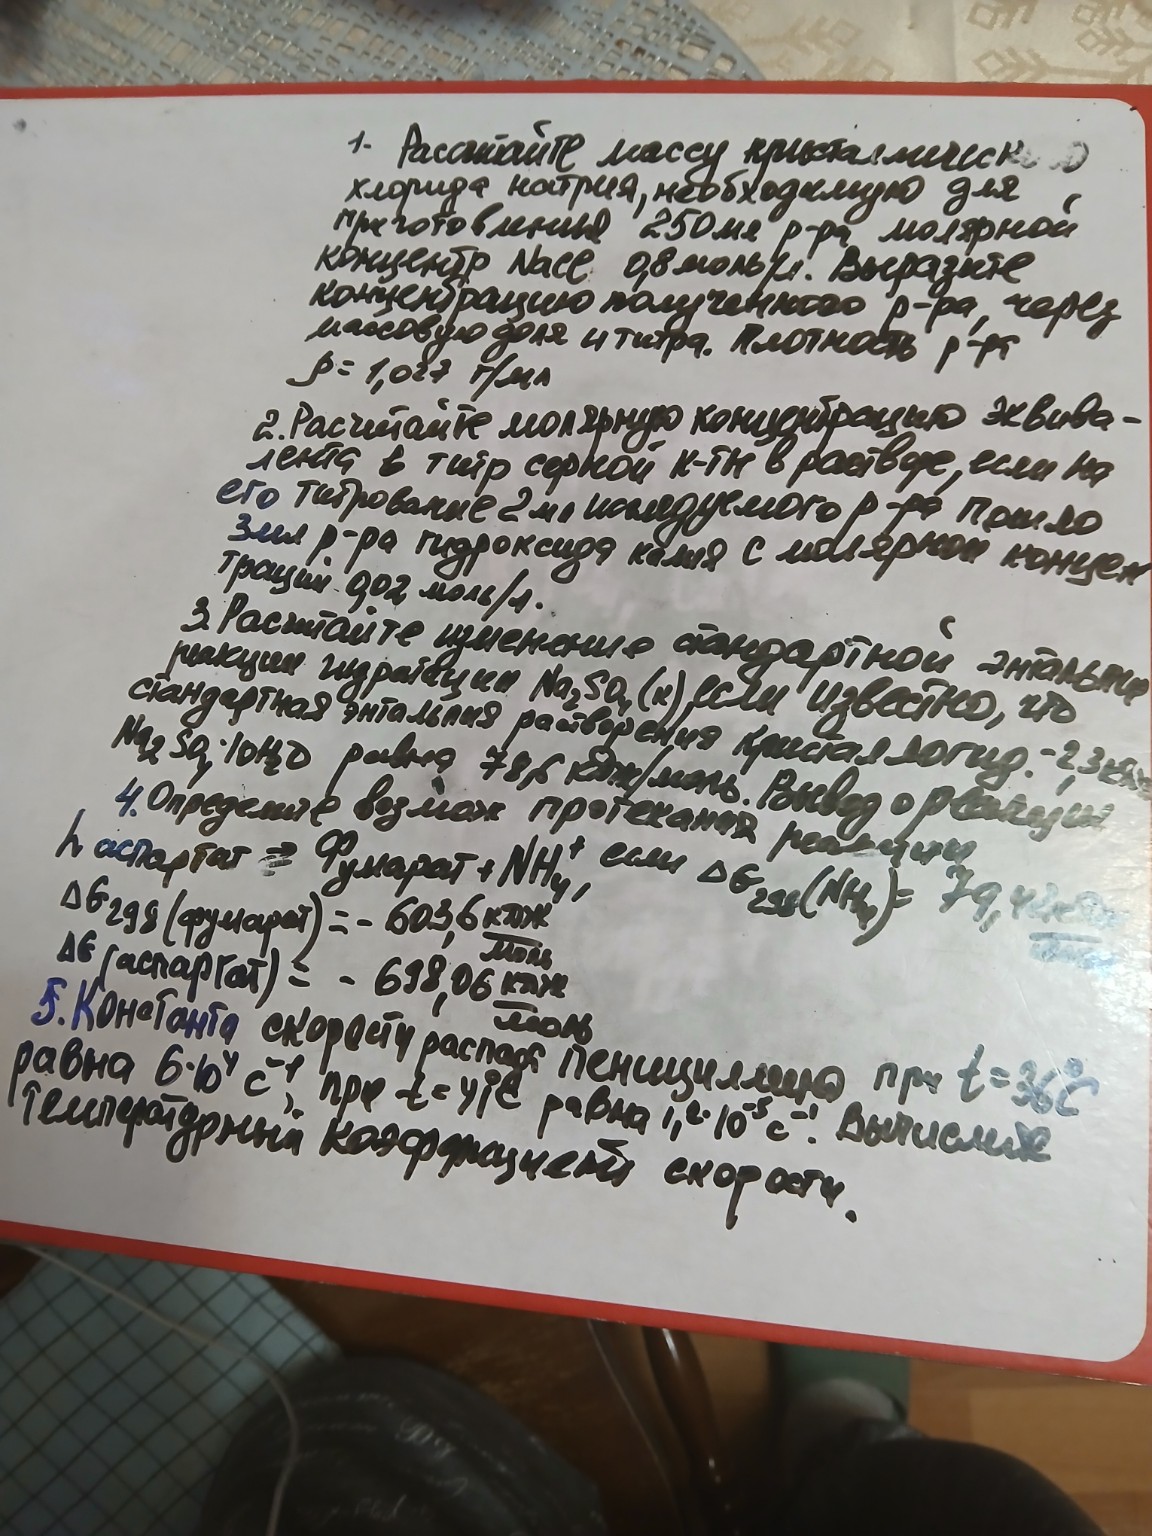 1. Рассчитайте массу кристаллического
хлорида натрия, необходимую для
приготовления 250 мл р-ра молярной
концентр NaCl 0,8 моль/л. Выразите
концентрацию полученного р-ра, через
массовую доля и титра. Плотность р-ра
ρ = 1,027 г/мл
2. Расчитайте молярную концентрацию эквива-
лента в титр серной к-ты в растворе, если на
его титрование 2 мл исследуемого р-ра пошло
3 мл р-ра гидроксида калия с молярной концен
трацией 0,02 моль/л.
3. Расчитайте изменение стандартной энтальпие
реакции гидратации Na2SO4 (к), если известно, что
стандартная энтальпия растворения кристаллогид. -2,3 кДж
Na2SO4·10H2O равна 78,6 кДж/моль. Вывод о реакции
4. Определите возмож протекания реакции
L аспартат ⇌ Фумарат + NH4+, если ΔG298(NH4) = 79,42
ΔG298 (фумарат) = - 603,6 кДж/моль
ΔG (аспартат) = - 698,06 кДж/моль
5. Константа скорости распада пенициллина при t = 36°C
равна 6·10⁴ с⁻¹, при t = 41°C равна 1,2·10⁻⁵ с⁻¹. Вычислите
температурный коэффициент скорости.